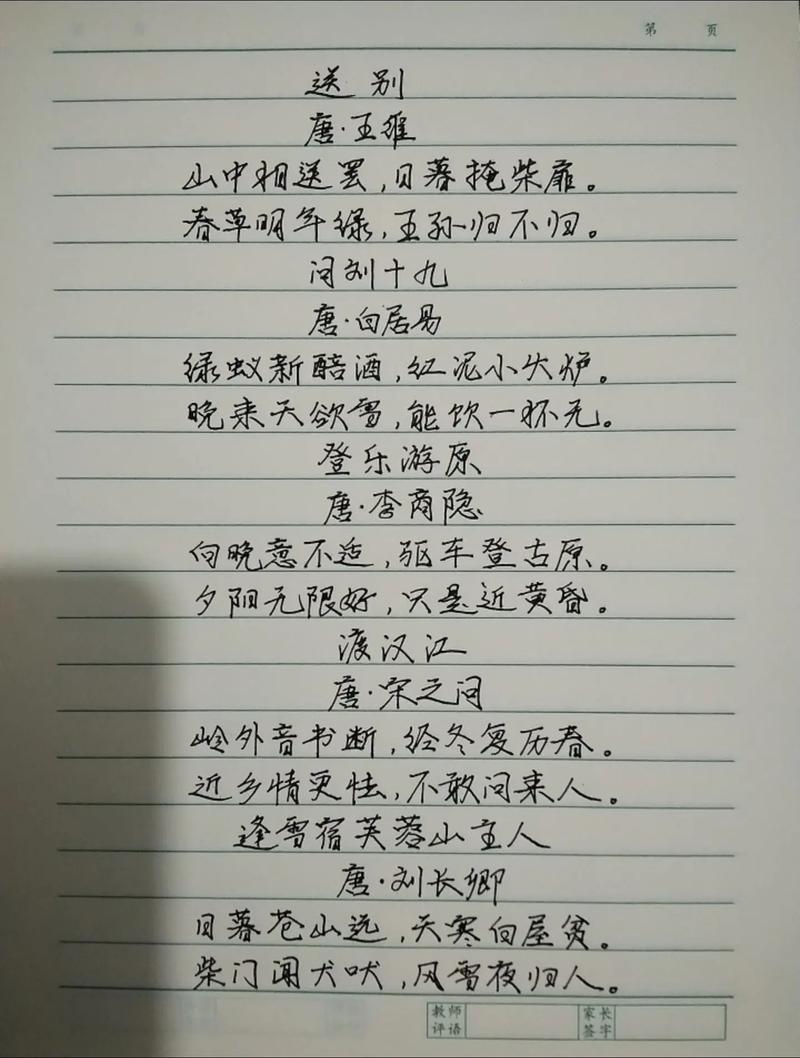 第 页
送别
唐·王维
山中相送罢,日暮掩柴扉。
春草明年绿,王孙归不归。
问刘十九
唐·白居易
绿蚁新醅酒,红泥小火炉。
晚来天欲雪,能饮一杯无。
登乐游原
唐·李商隐
向晚意不适,驱车登古原。
夕阳无限好,只是近黄昏。
渡汉江
唐·宋之问
岭外音书断,经冬复历春。
近乡情更怯,不敢问来人。
逢雪宿芙蓉山主人
唐·刘长卿
日暮苍山远,天寒白屋贫。
柴门闻犬吠,风雪夜归人。
教师评语 家长签字